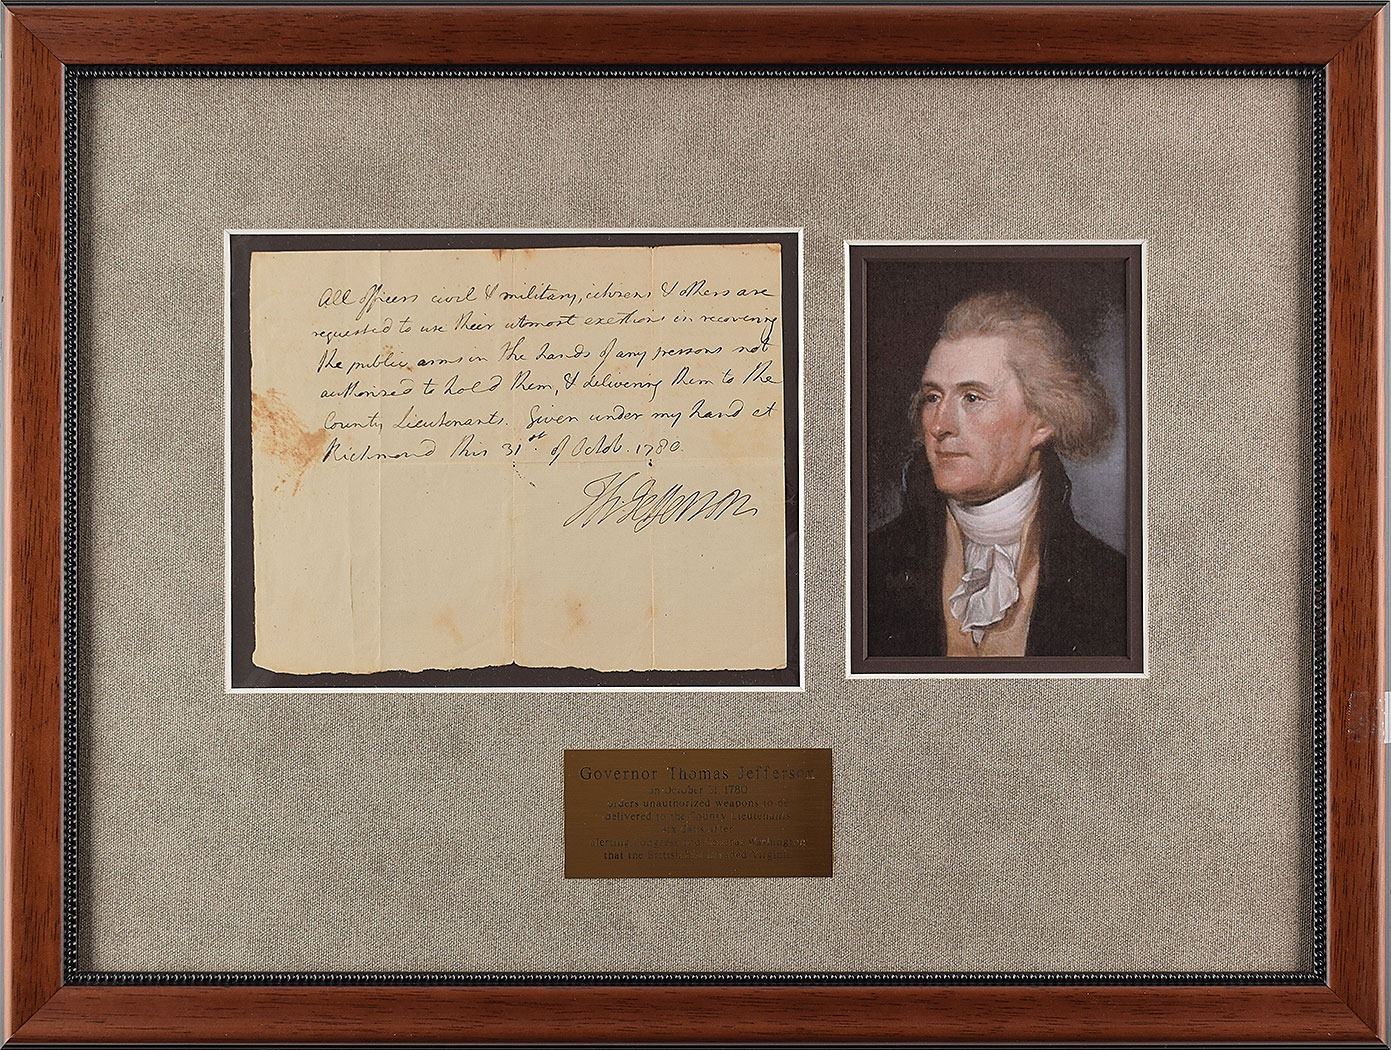 All officers civil & military, citizens & others are
requested to use their utmost exertions in recovering
the public arms in the hands of any persons not
authorised to hold them, & delivering them to the
County Lieutenants. Given under my hand at
Richmond this 31st. of Octob. 1780.
Th: Jefferson
Governor Thomas Jefferson
on October 31, 1780
orders unauthorized weapons to be
delivered to the County Lieutenants
six days after
alerting Congress and General Washington
that the British had invaded Virginia